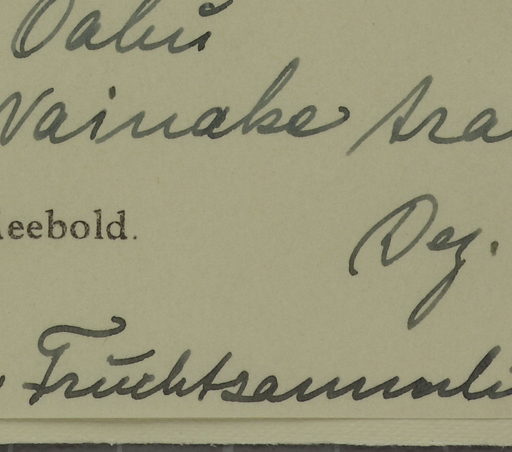 Oahu
Wainake tra
eebold.
Dez.
Fruchtsammli